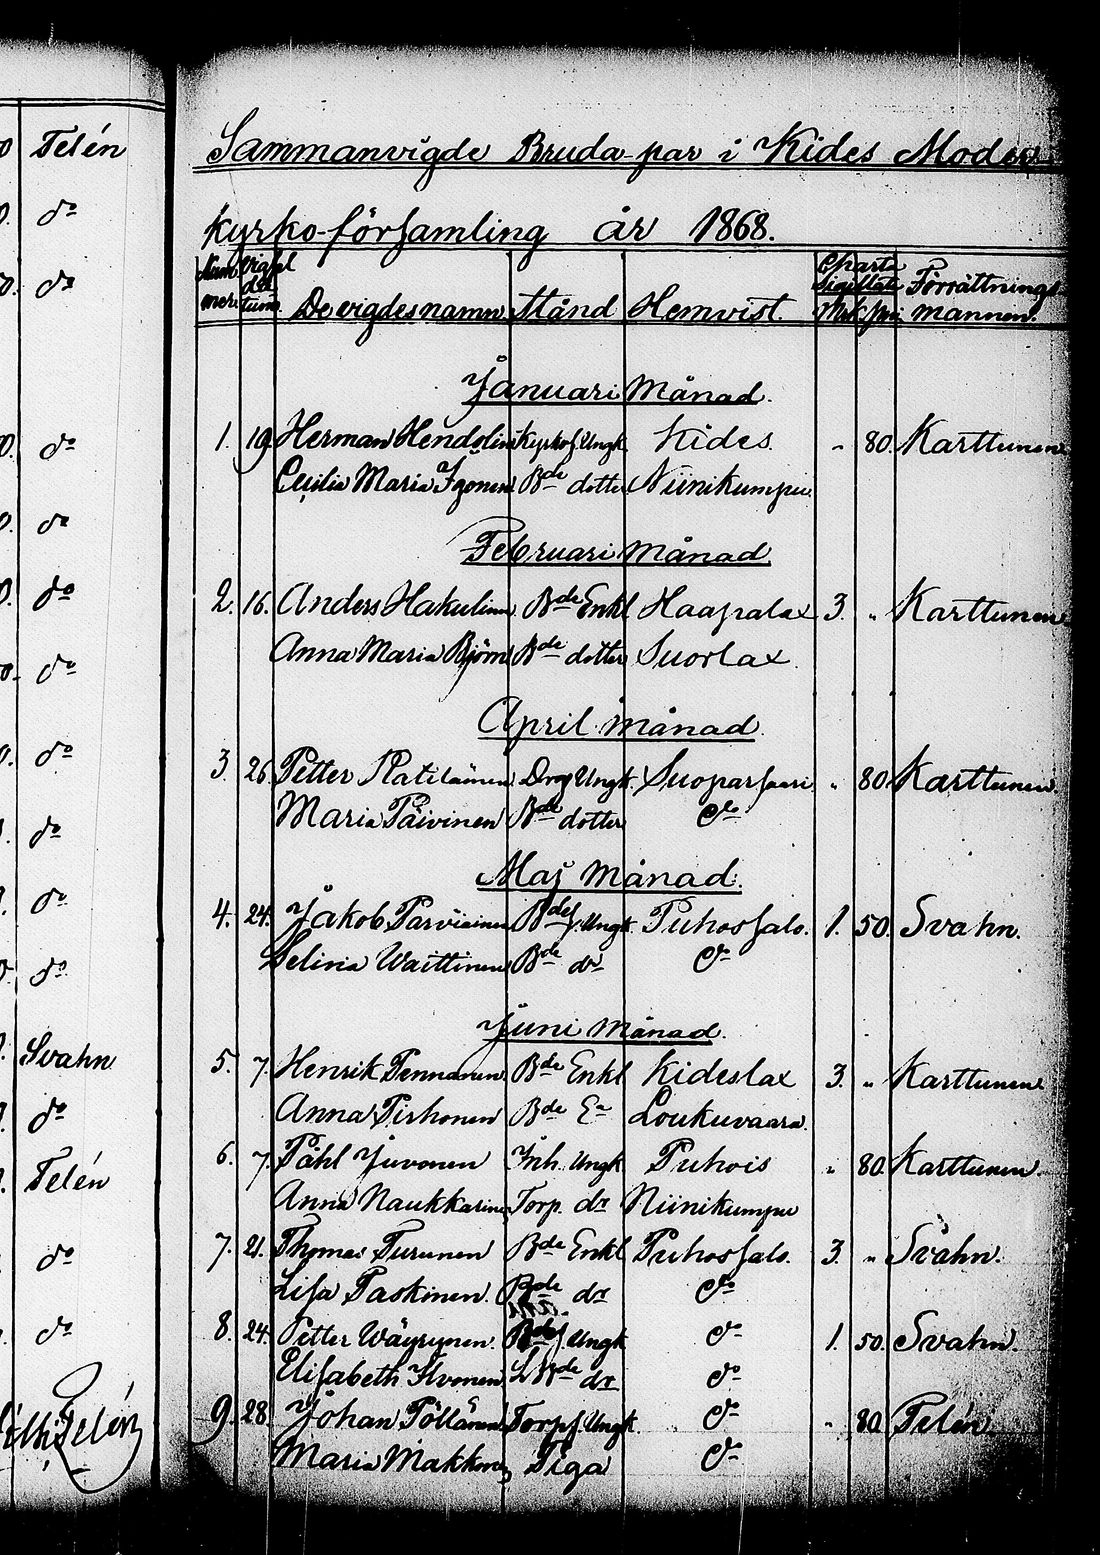 Telén
do
do
do
do
do
do
do
do
do
do
Svahn
do
Telén
do
do
Telén
Sammanvigde Bruda-par i Kides Moder-
kyrko-församling år 1868.
Nummer Vigseldatum De vigdes namn. Stånd Hemvist. Charta Sigillata Mk pni Förrättningsmannen.
Januari Månad.
1. 19. Herman Hendolin Kyrkos. Ungk. Kides. " 80. Karttunen
Cecilia Maria Igonen Bde dotter Niinikumpu.
Februari Månad.
2. 16. Anders Hakulinen Bde Enkl Haapalax 3. " Karttunen
Anna Maria Björn Bde dotter Suorlax
April Månad.
3. 26. Petter Ratilainen Drag Ungk. Suoparsaari " 80 Karttunen
Maria Päivinen Bde dotter do
Maj Månad.
4. 24. Jakob Parviainen Bdes. Ungk. Puhossalo. 1. 50. Svahn.
Selina Waittinen Bde dr do
Juni Månad.
5. 7. Henrik Pennanen Bde Enkl Kideslax 3. " Karttunen
Anna Pirhonen Bde Ea Loukuvaara.
6. 7. Påhl Juvonen Inh. Ungk. Puhois " 80. Karttunen.
Anna Naukkarinen Torp. dr Niinikumpu
7. 21. Thomas Turunen Bde Enkl Puhossalo. 3. " Svahn.
Lisa Paskinen. Bde dr do
8. 24. Petter Wäyrynen. Bdes Ungk do 1. 50. Svahn.
Elisabeth Ilvonen dr do
9. 28. Johan Pöllänen Torps. Ungk. do " 80. Telén
Maria Makkonen Piga do